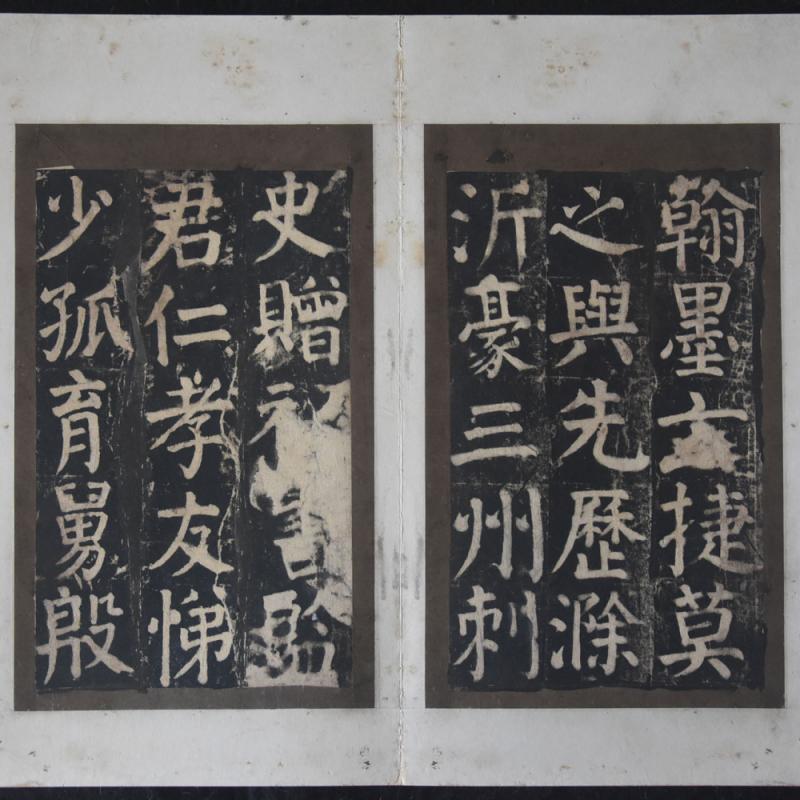 翰墨捷莫
之與先歷滁
沂豪三州刺
史贈書監
君仁孝友悌
少孤育舅殷